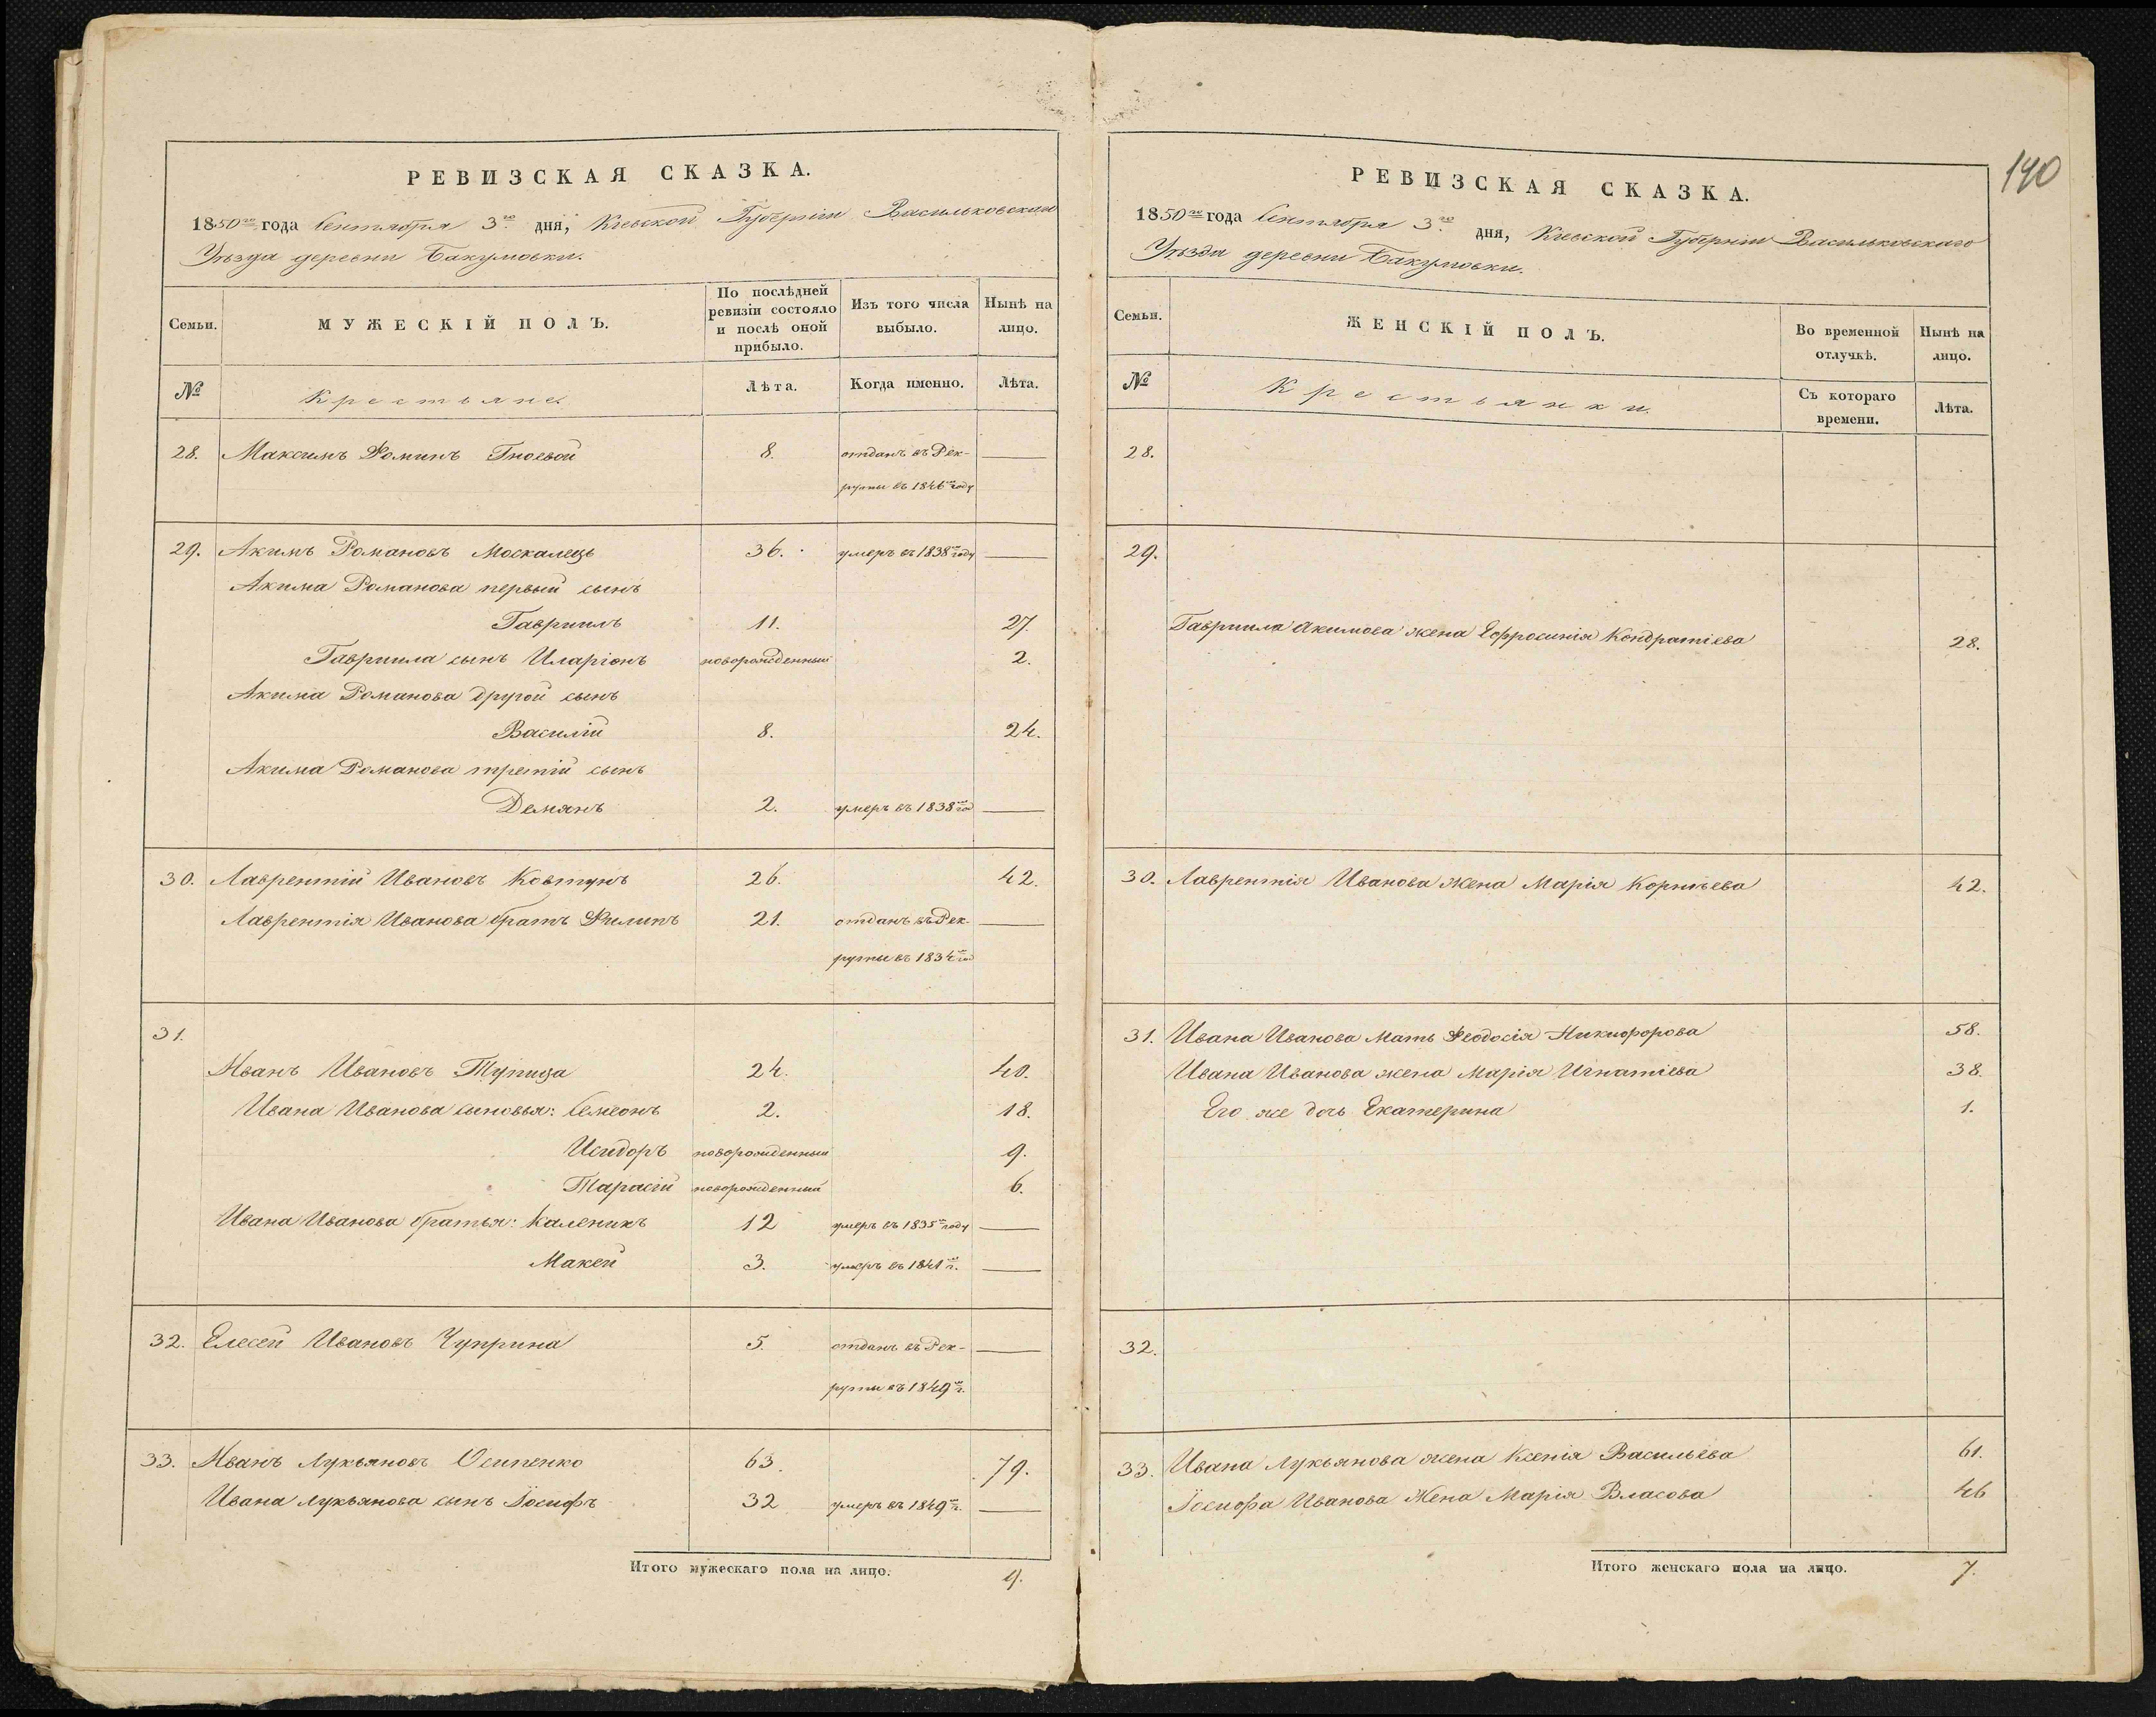 РЕВИЗСКАЯ СКАЗКА.
1850го года Сентября 3го дня, Кіевской Губерніи Васильковскаго
Уѣзда деревни Бакумовки.
Семьи.
МУЖЕСКІЙ ПОЛЪ.
По послѣдней
ревизіи состояло
и послѣ оной
прибыло.
Изъ того числа
выбыло.
Нынѣ на
лицо.
№
Крестьяне
Лѣта.
Когда именно.
Лѣта.
28. Максимъ Ѳоминъ Гноевой 8. отданъ въ Рек-
руты въ 1846мъ году
29. Акимъ Романовъ Москалецъ 36. умеръ въ 1838мъ году
Акима Романова первый сынъ
Гавриилъ 11. 27.
Гавриила сынъ Иларіонъ новорожденный 2.
Акима Романова другой сынъ
Василій 8. 24.
Акима Романова третій сынъ
Демянъ 2. умеръ въ 1838мъ год
30. Лаврентій Ивановъ Ковтунъ 26. 42.
Лаврентія Иванова братъ Филипъ 21. отданъ въ Рек-
руты въ 1834мъ год
31.
Иванъ Ивановъ Тупица 24. 40.
Ивана Иванова сыновья: Семеонъ 2. 18.
Исидоръ новорожденный 9.
Тарасій новорожденный 6.
Ивана Иванова братья: Каленикъ 12 умеръ въ 1835мъ году
Макей 3. умеръ въ 1841мъ г.
32. Елесей Ивановъ Чуприна 5. отданъ въ Рек-
руты въ 1849мъ г.
33. Иванъ Лукьяновъ Осипенко 63. 79.
Ивана Лукьянова сынъ Іосифъ 32 умеръ въ 1849мъ г.
Итого мужескаго пола на лицо. 9.
190
РЕВИЗСКАЯ СКАЗКА.
1850го года Сентября 3го дня, Кіевской Губерніи Васильковскаго
Уѣзда деревни Бакумовки.
Семьи.
ЖЕНСКІЙ ПОЛЪ.
Во временной
отлучкѣ.
Нынѣ на
лицо.
№
Крестьянки.
Съ котораго
времени.
Лѣта.
28.
29.
Гавриила Акимова жена Ефросинія Кондратіева 28.
30. Лаврентія Иванова жена Марія Корнѣева 42.
31. Ивана Иванова Мать Ѳеодосія Никифорова 58.
Ивана Иванова жена Марія Игнатіева 38.
Его же дочь Екатерина 1.
32.
33. Ивана Лукьянова жена Ксенія Васильева 61.
Іосифа Иванова Жена Марія Власова 46
Итого женскаго пола на лицо. 7.